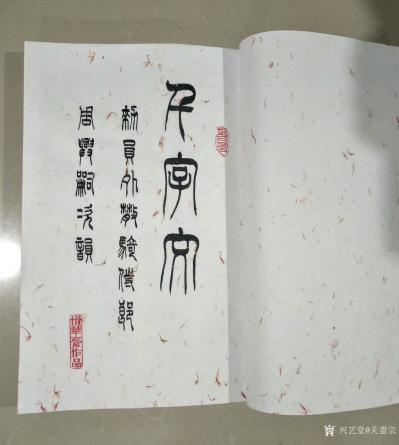 千字文
敕員外散騎侍郎
周興嗣次韻
惜華齋作品
兴艺堂@关惠宗